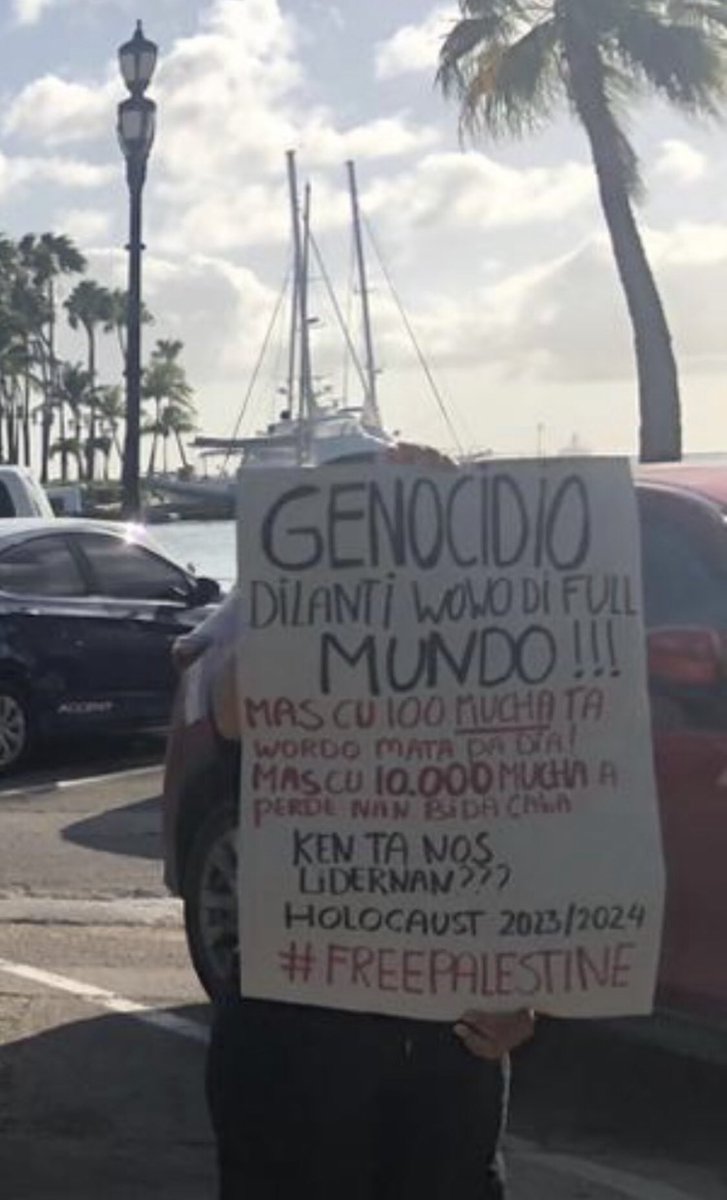 GENOCIDIO
DILANTI WOWO DI FULL
MUNDO!!!
MAS CU 100 MUCHA TA
WORDO MATA PA DIA!
MAS CU 10.000 MUCHA A
PERDE NAN BIDA CABA
KEN TA NOS
LIDERNAN???
HOLOCAUST 2023/2024
#FREEPALESTINE
ACCENT